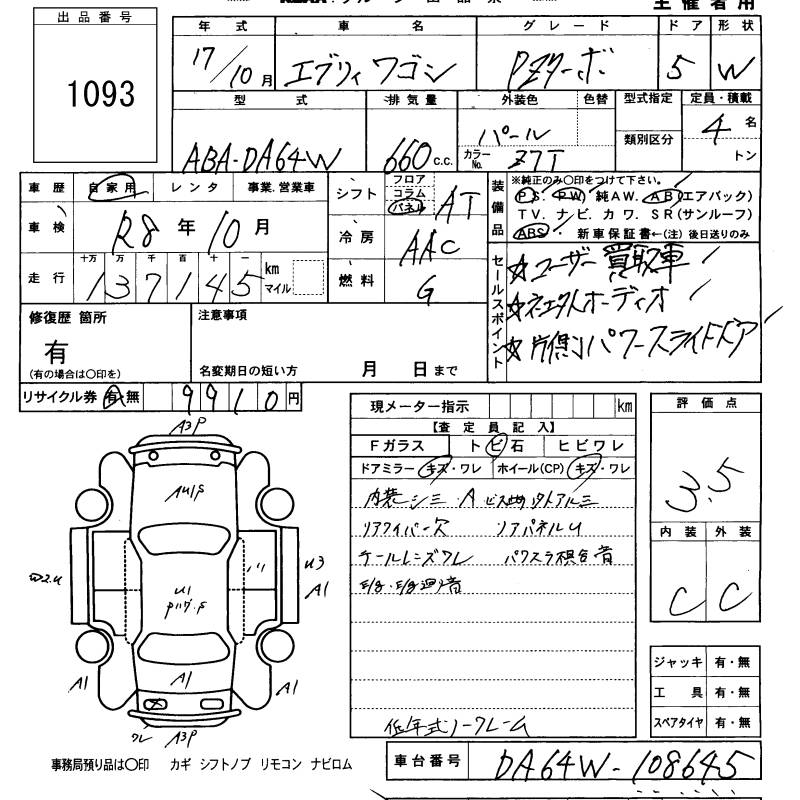 主催者用
出品番号
1093
年式 車名 グレード ドア 形状
17/10月 エブリィワゴン PZターボ 5 W
型式 排気量 外装色 色替 型式指定 定員・積載
ABA-DA64W 660 c.c. パール
カラーNo. Z7T
類別区分 4名
トン
車歴 自家用 レンタ 事業.営業車
車検 R8年10月
走行 十万 万 千 百 十 一
137145 km
マイル
シフト フロア コラム パネル AT
冷房 AAC
燃料 G
装備品 ※純正のみ〇印をつけて下さい。
PS. PW. 純AW. AB(エアバック)
TV. ナビ. カワ. SR(サンルーフ)
ABS・ 新車保証書←(注)後日送りのみ
セールスポイント ☆ユーザー買取車
☆社外オーディオ
☆片側パワースライドドア
修復歴 箇所
有
(有の場合は〇印を)
注意事項
名変期日の短い方 月 日まで
リサイクル券 有・無 9910円
現メーター指示 km
【査定員記入】
Fガラス トビ石 ヒビワレ
ドアミラー キズ・ワレ ホイール(CP) キズ・ワレ
内装シミ・A ビス穴 社外アルミ
リアワイパー欠 リアパネルU
テールレンズワレ パワスラ異音
低年式ノークレーム
評価点
3.5
内装 外装
C C
ジャッキ 有・無
工具 有・無
スペアタイヤ 有・無
A3P
A4 1P
W2.U
U1
U3
A1
A1
A1
A1
ワレ A3P
事務局預り品は〇印 カギ シフトノブ リモコン ナビロム
車台番号 DA64W-108645